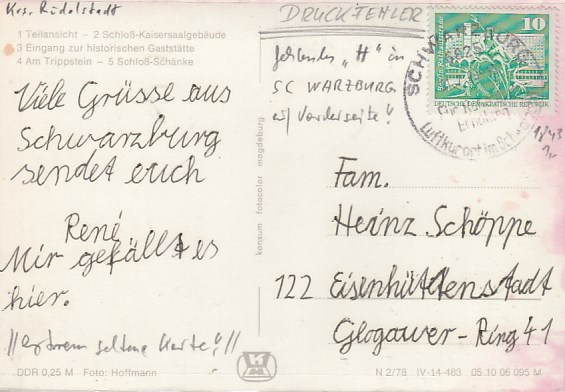 Krs. Rudolstadt
1 Teilansicht – 2 Schloß-Kaisersaalgebäude
3 Eingang zur historischen Gaststätte
4 Am Trippstein – 5 Schloß-Schänke
Viele Grüsse aus
Schwarzburg
sendet euch
René
Mir gefällt es
hier.
//extrem seltene Karte!//
DDR 0,25 M Foto: Hoffmann
konsum fotocolor magdeburg
DRUCKFEHLER
fehlendes "H" in
SC WARZBURG
auf Vorderseite!
10
DEUTSCHE DEMOKRATISCHE REPUBLIK
SCHWARZBURG
Luftkurort im
Fam.
Heinz Schöppe
122 Eisenhüttenstadt
Glogower-Ring 41
N 2/78 IV-14-483 05 10 06 095 M